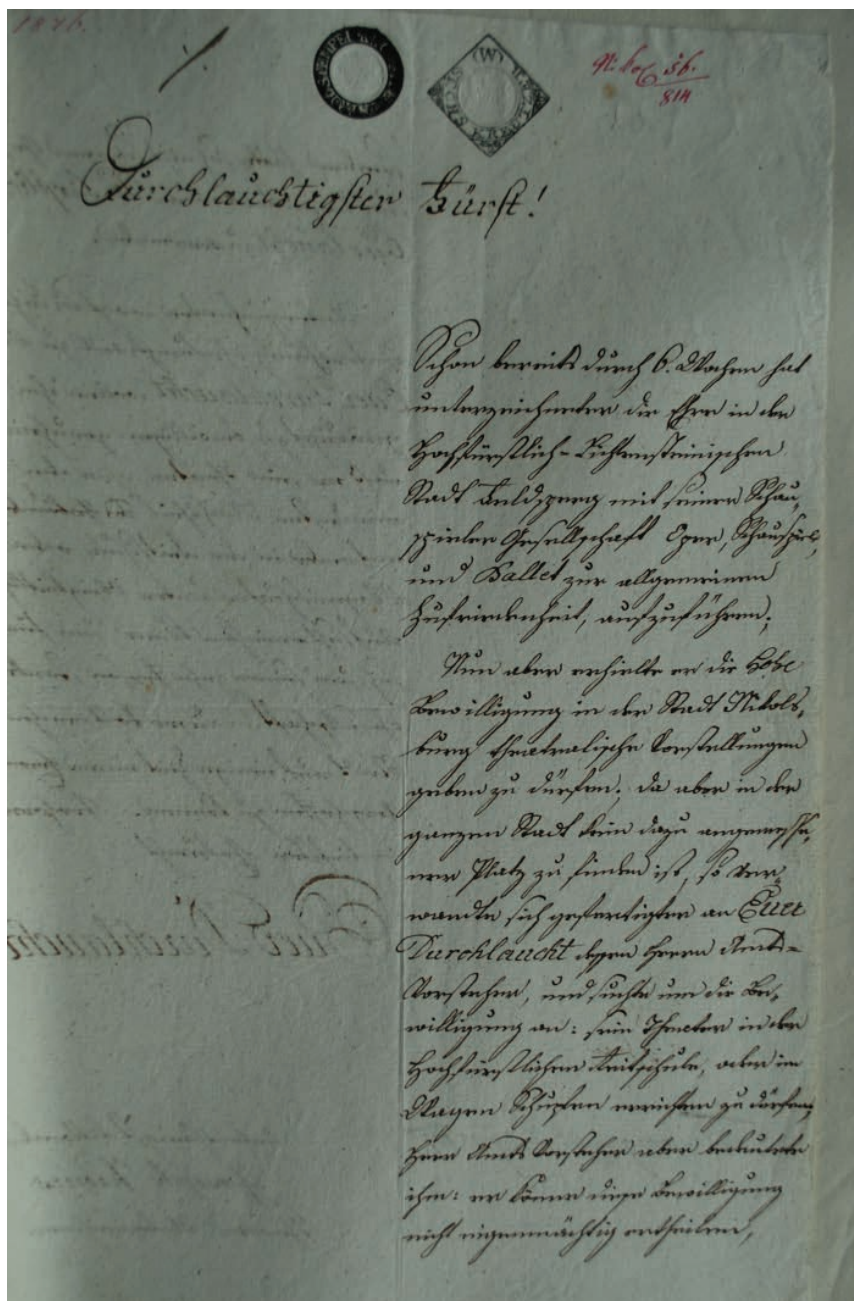 1876.
Nikol. 56.
814
Durchlauchtigster Fürst!
Schon bereits durch 6. Wochen hat
unterzeichneter die Ehre in der
Hochfürstlich-Lichtensteinischen
Stadt Feldsperg mit seiner Schau,
spieler Gesellschaft Oper, Schauspiel,
und Ballet zur allgemeinen
Zufriedenheit, aufzuführen.
Nun aber erhielte er die hohe
Bewilligung in der Stadt Nikols,
burg theatralische Vorstellungen
geben zu dürfen; da aber in der
ganzen Stadt kein dazu angemesse,
ner Platz zu finden ist, so ver,
wandte sich gefertigter an Euer
Durchlaucht dessen Herrn Amts-
Vorsteher, und suchte um die Be,
willigung an: sein Theater in der
Hochfürstlichen Reitschule, oder im
Wagen Schupfen errichten zu dürfen,
Herr Amts Vorsteher aber bedeutete
ihm: er könne diese Bewilligung
nicht eigenmächtig ertheilen,